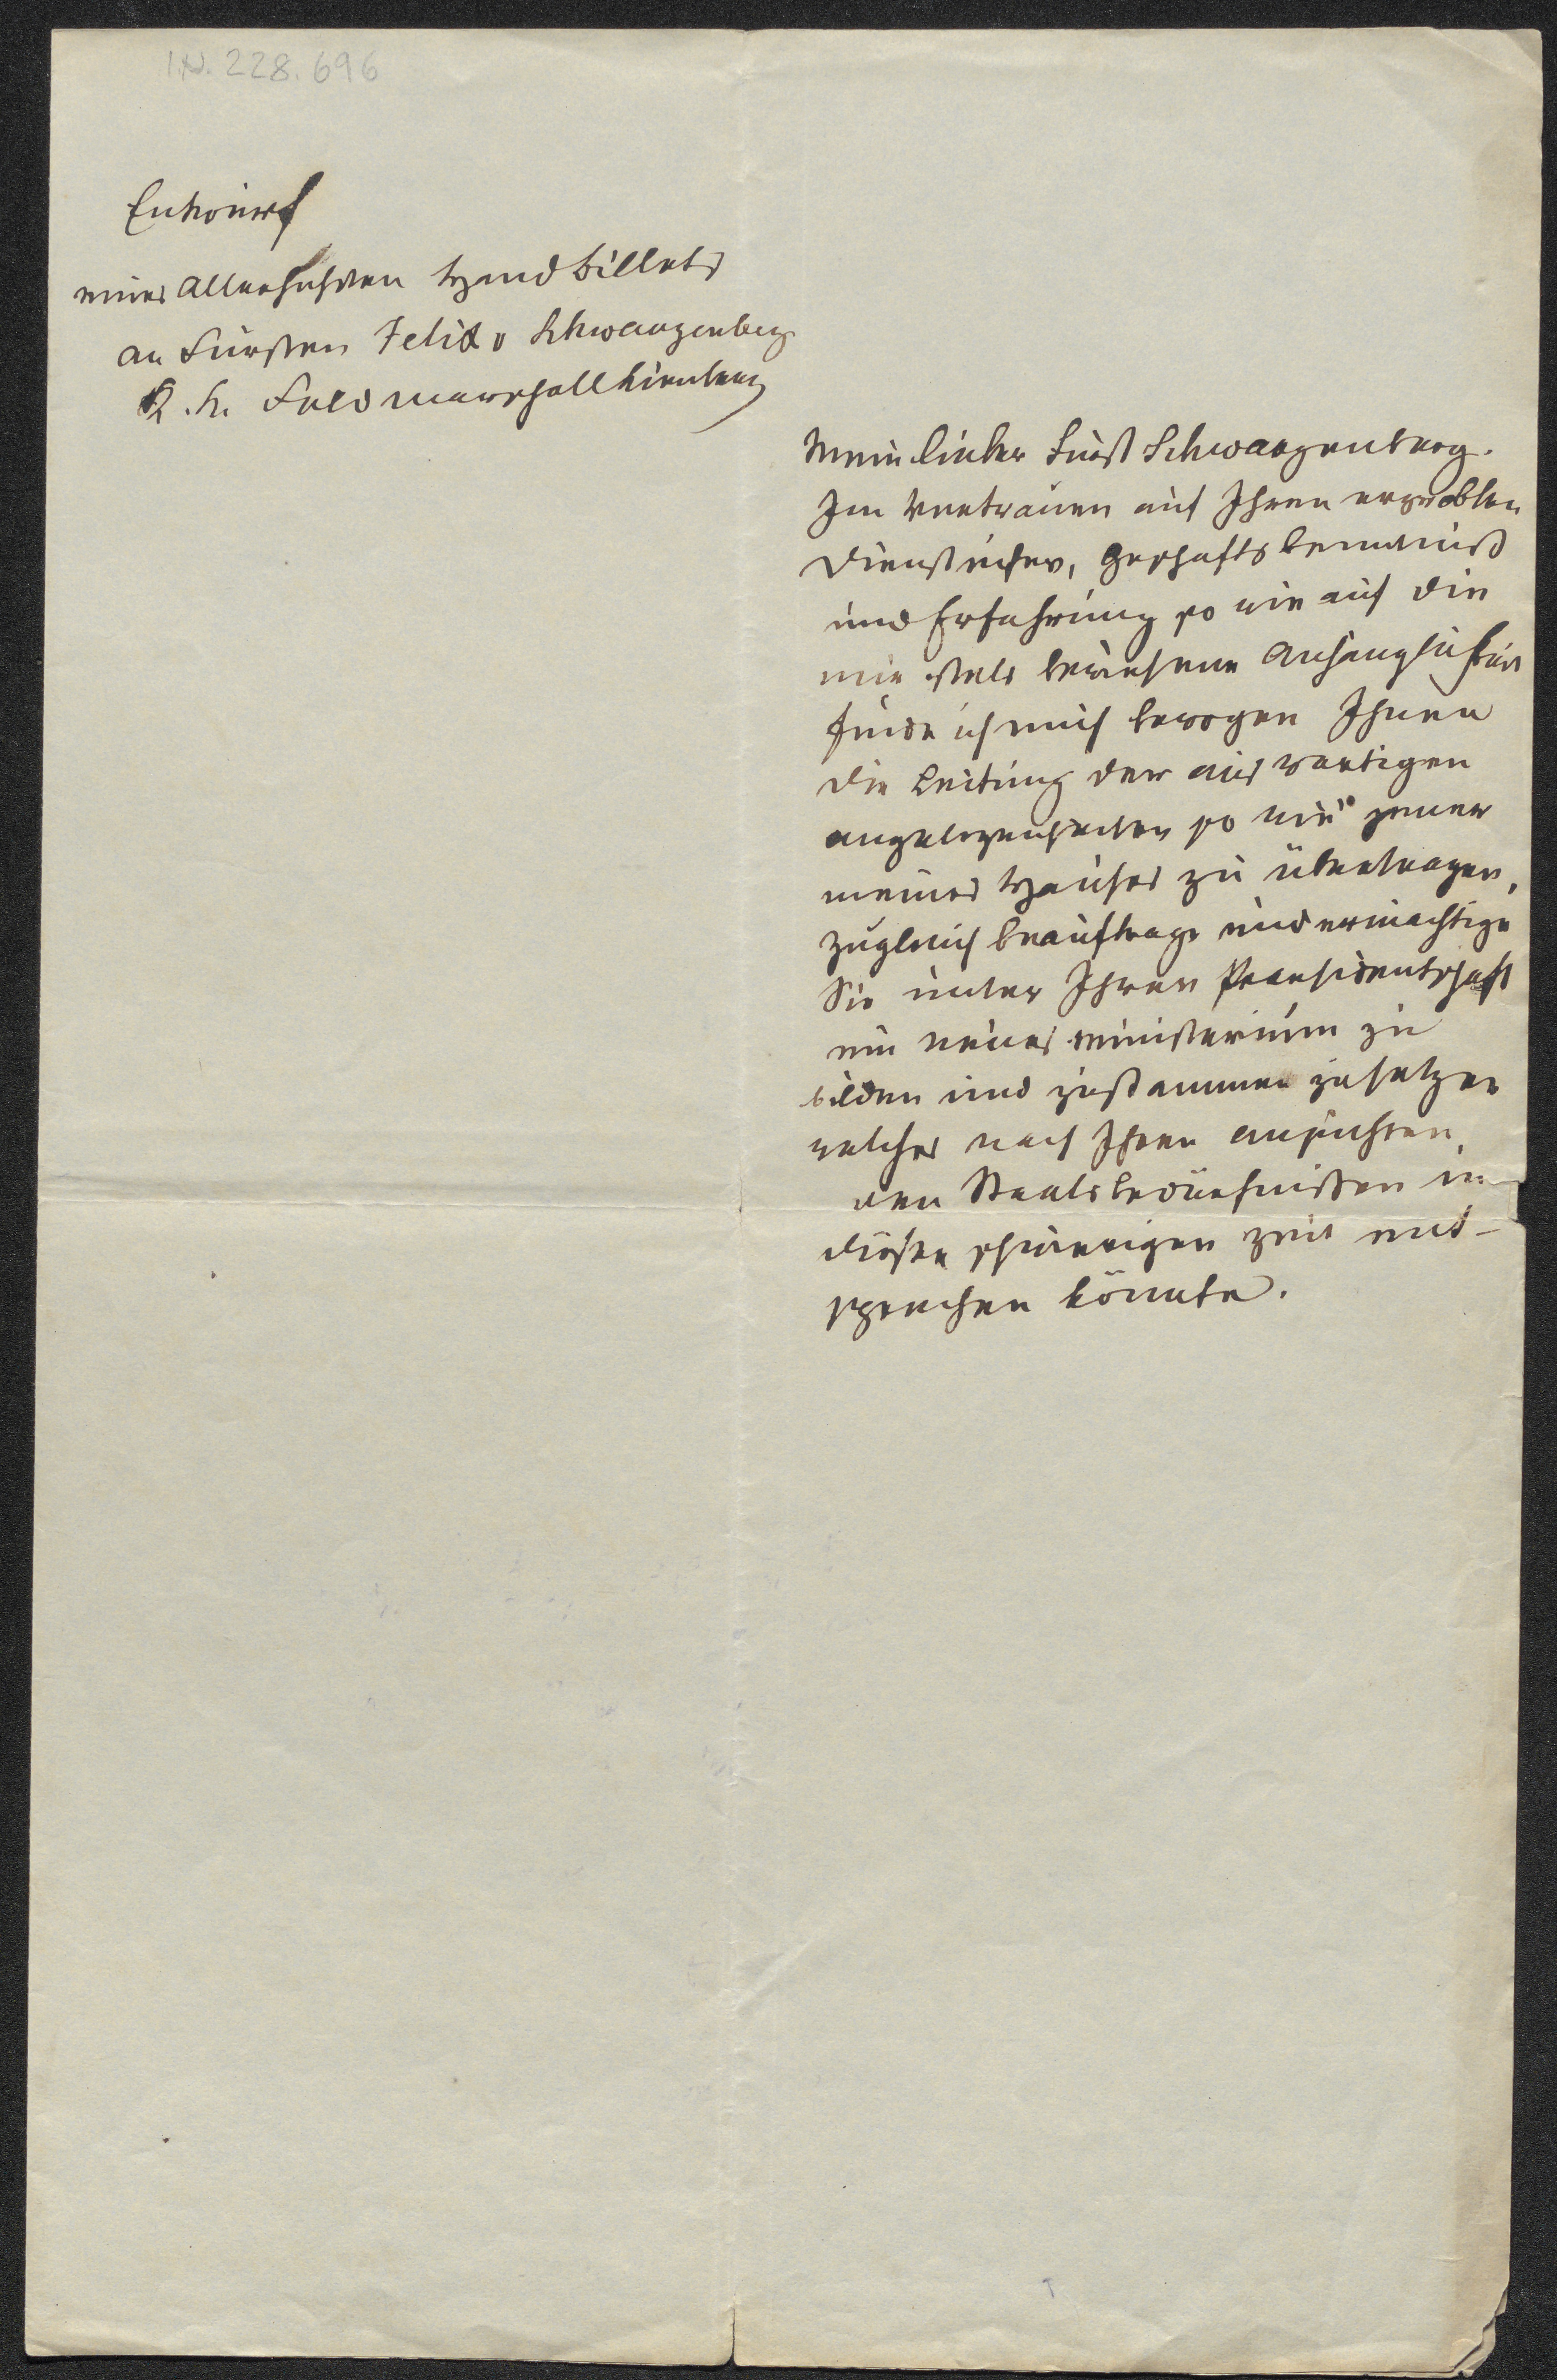 I.N. 228.696
Entwurf
eines Allerhöchsten Handbillets
an Fürsten Felix v Schwarzenberg
K. K. Feldmarschall Lieutenant
Mein lieber Fürst Schwarzenberg.
Im Vertrauen auf Ihren erprobten
Diensteifer, Geschäftskenntniß
und Erfahrung so wie auf die
mir stets bewiesene Anhänglichkeit
finde ich mich bewogen Ihnen
die Leitung der auswärtigen
Angelegenheiten so wie jener
meines Hauses zu übertragen,
zugleich beauftrage und ermächtige
Sie unter Ihrer Praesidentschaft
ein neues Ministerium zu
bilden und zusammen zusetzen
welches nach Ihren Ansichten
den Staatsbedürfnißen in
dieser schwierigen Zeit ent-
sprechen könnte.